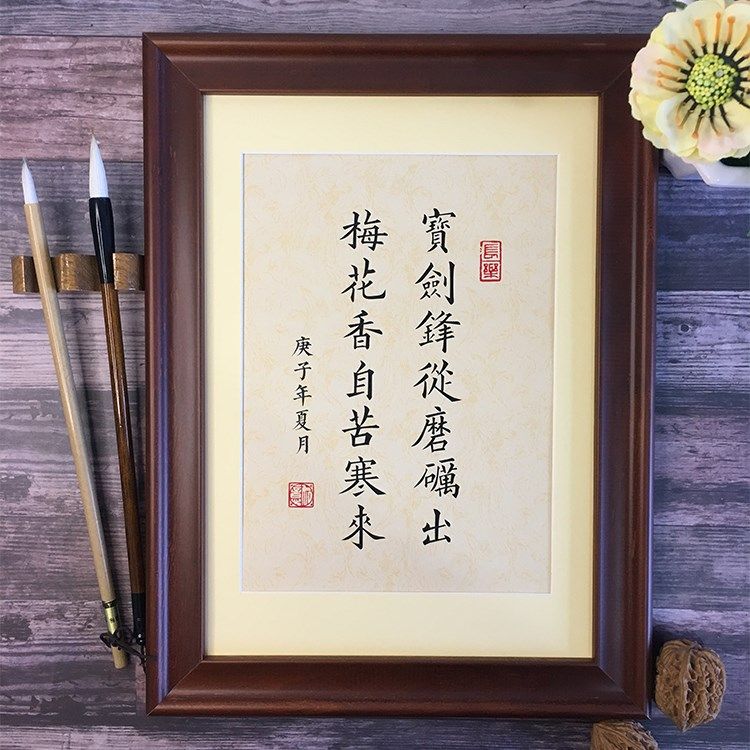 寶劍鋒從磨礪出
梅花香自苦寒來
庚子年夏月
長樂